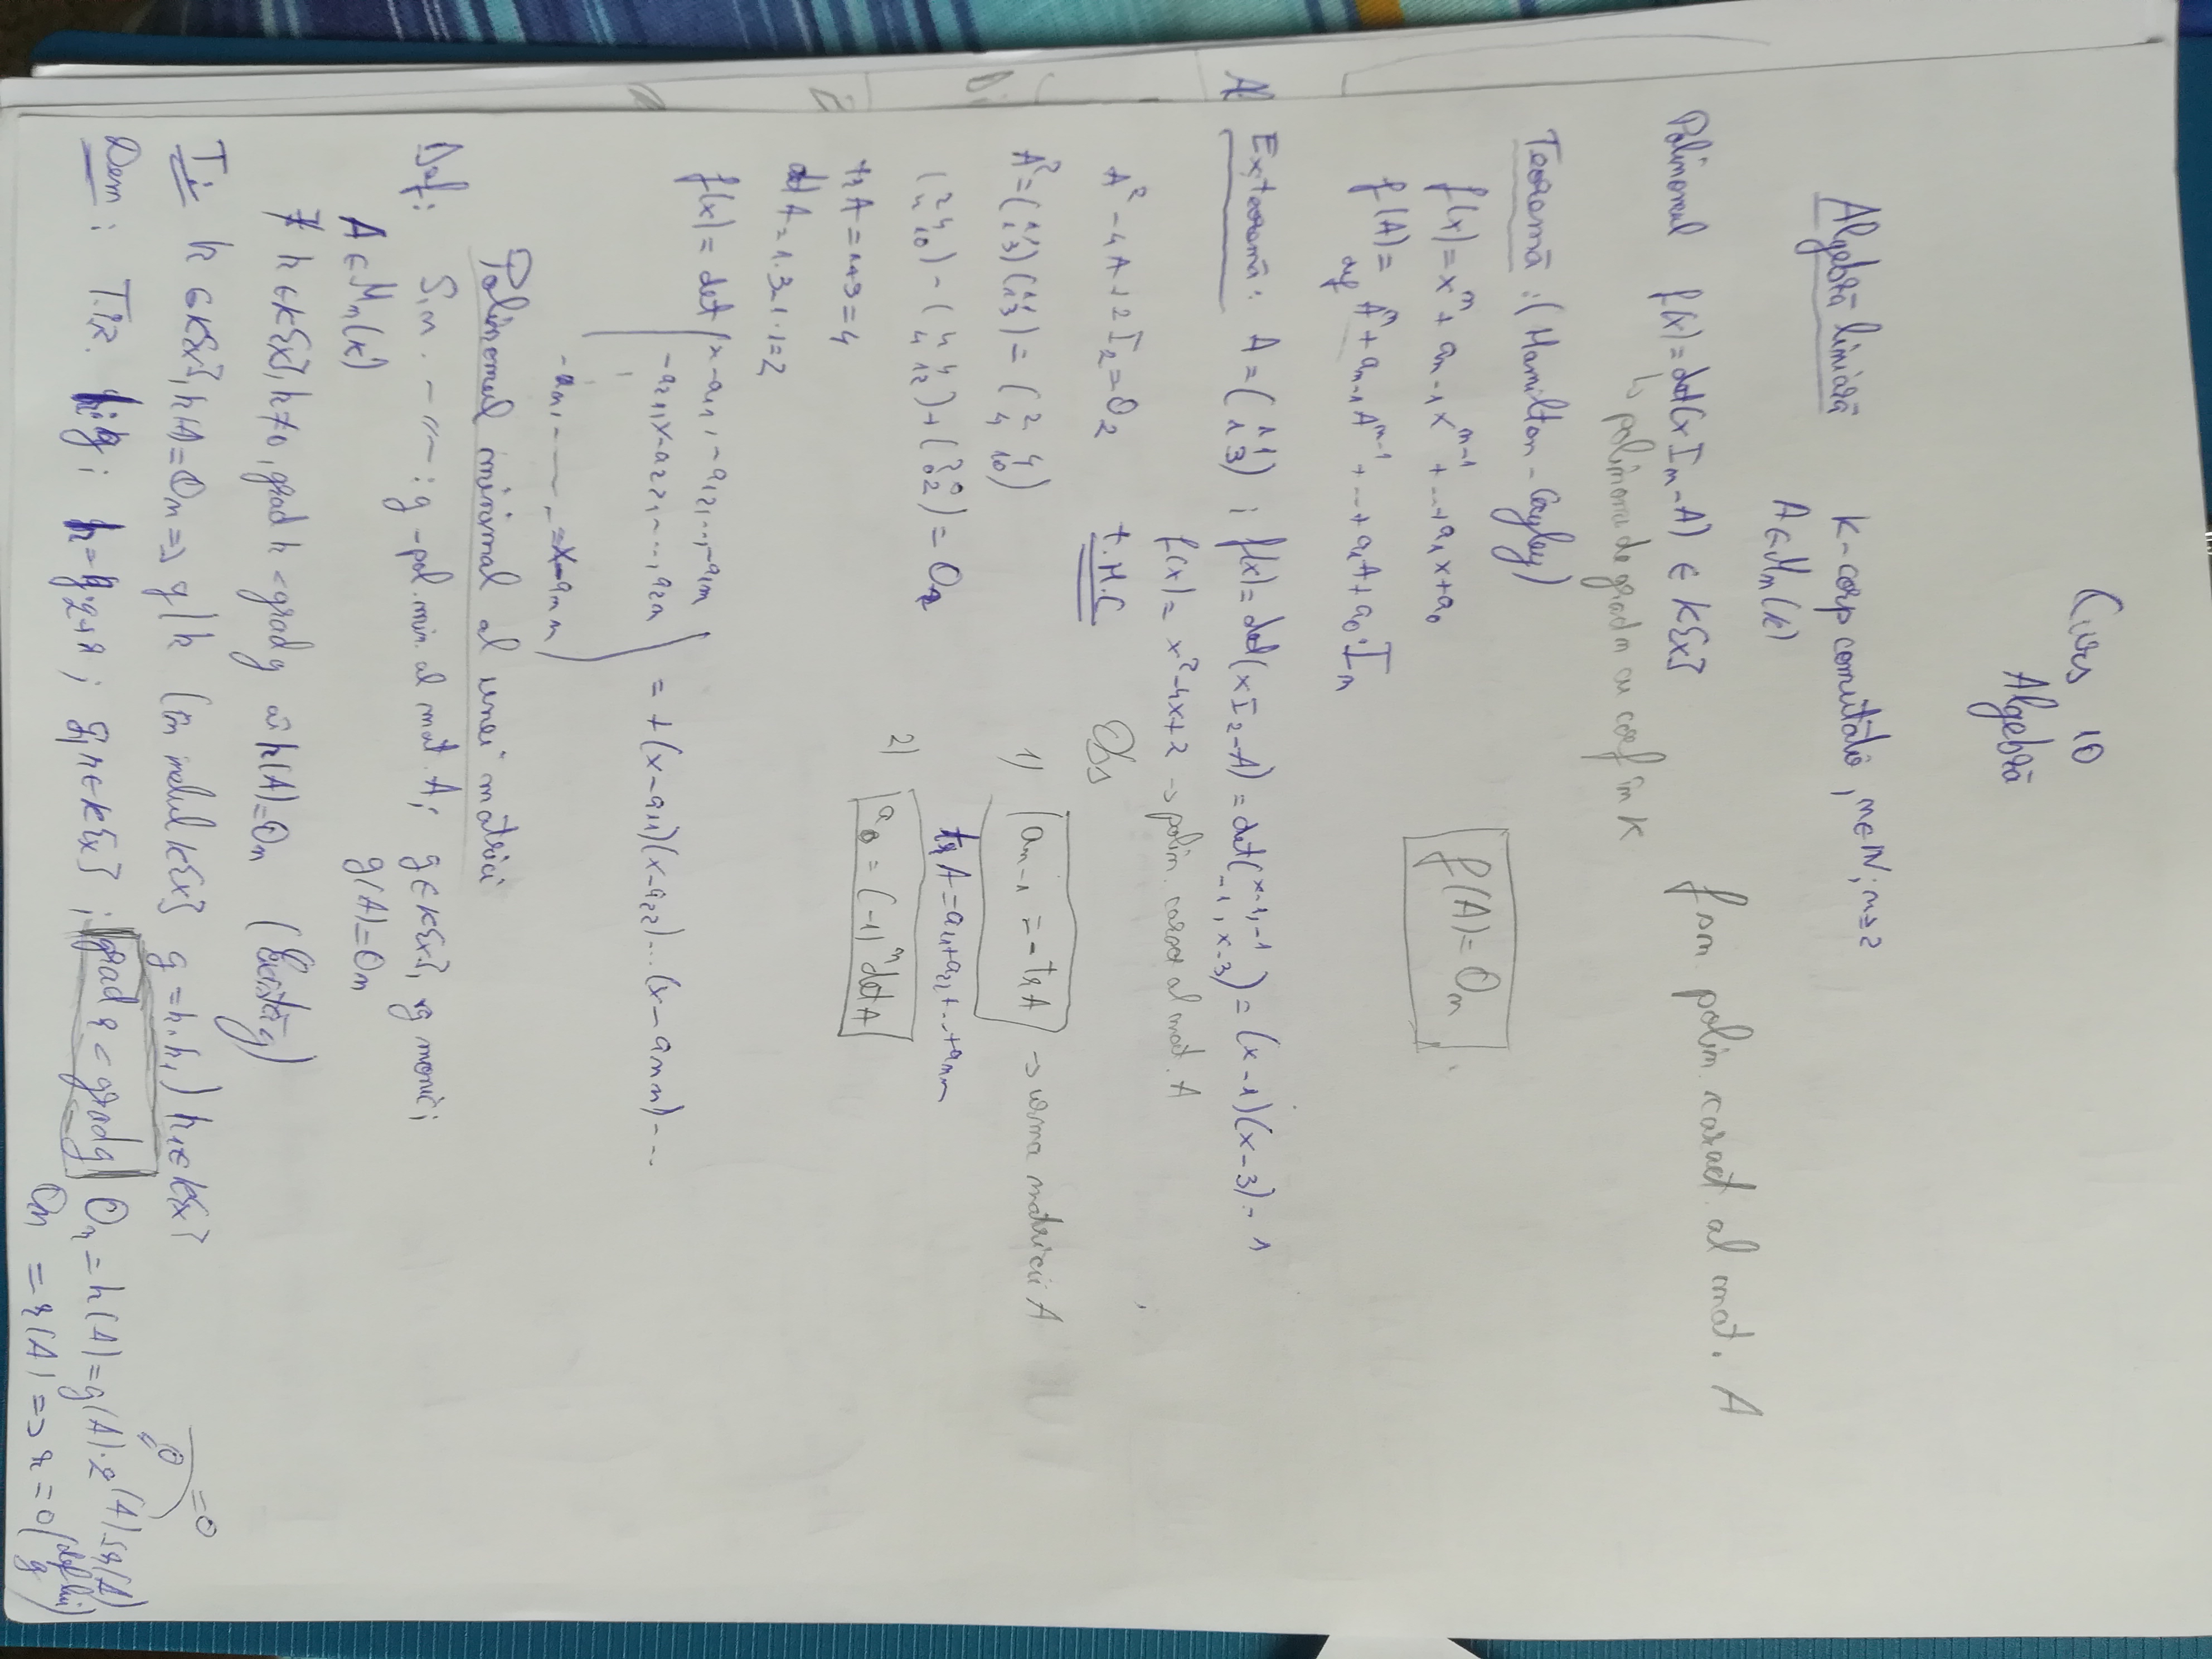 Curs 10
Algebră
Algebră liniară K-corp comutativ, n∈N; n≥2
A∈Mn(K)
Polinomul f(x)=det(xIn-A) ∈ K[x] s.n. polin. caract. al mat. A
↳ polinom de grad n cu coef în K
Teoremă: (Hamilton-Cayley)
f(x)=xⁿ+an-1xⁿ⁻¹+...+a1x+a0 f(A)=On
f(A)= Aⁿ+an-1Aⁿ⁻¹+...+a1A+a0·In
def
Ex, teoremă: A=(1 1 / 1 3); f(x)=det(xI2-A)=det(x-1, -1 / -1, x-3)=(x-1)(x-3)-1
f(x)=x²-4x+2 → polin. caract al mat. A
A²-4A+2I2=O2 t.H.C Obs
A²=(1 1 / 1 3)(1 1 / 1 3)=(2 4 / 4 10) 1) an-1=-trA → urma matricii A
(2 4 / 4 10)-(4 4 / 4 12)+(2 0 / 0 2)=O2 trA=a11+a22+...+ann
2) a0=(-1)ⁿdetA
trA=1+3=4
detA=1·3-1·1=2
f(x)=det(x-a11, -a12, ..., -a1n
-a21, x-a22, -..., a2n = +(x-a11)(x-a22)...(x-ann)-...
-an1 - - - , = x-ann)
Polinomul minimal al unei matrici
Def: S.n. -"-: g-pol. min. al mat. A; g∈K[x], g monic;
A∈Mn(K) g(A)=On
∄ h∈K[x], h≠0, grad h<grad g aî h(A)=On (Există g)
T: h∈K[x], h(A)=On => g|h (în inelul K[x] g=h·h1) h1∈K[x]
Dem: T.Î.R. h:g; h=g·q+r; q,r∈K[x]; grad r<grad g On=h(A)=g(A)·q(A)+r(A)
=0
=0
On =r(A) => r=0 (def lui g)